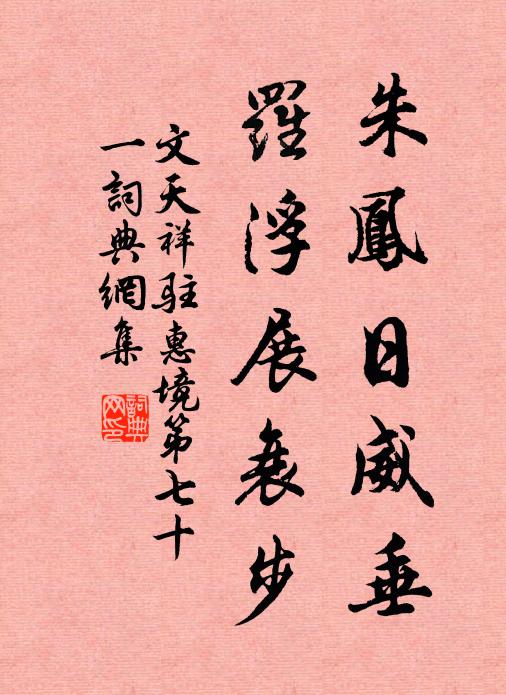 朱鳳日威垂
羅浮展衰步
文天祥駐惠境第七十
一詞典網集
詞典網印